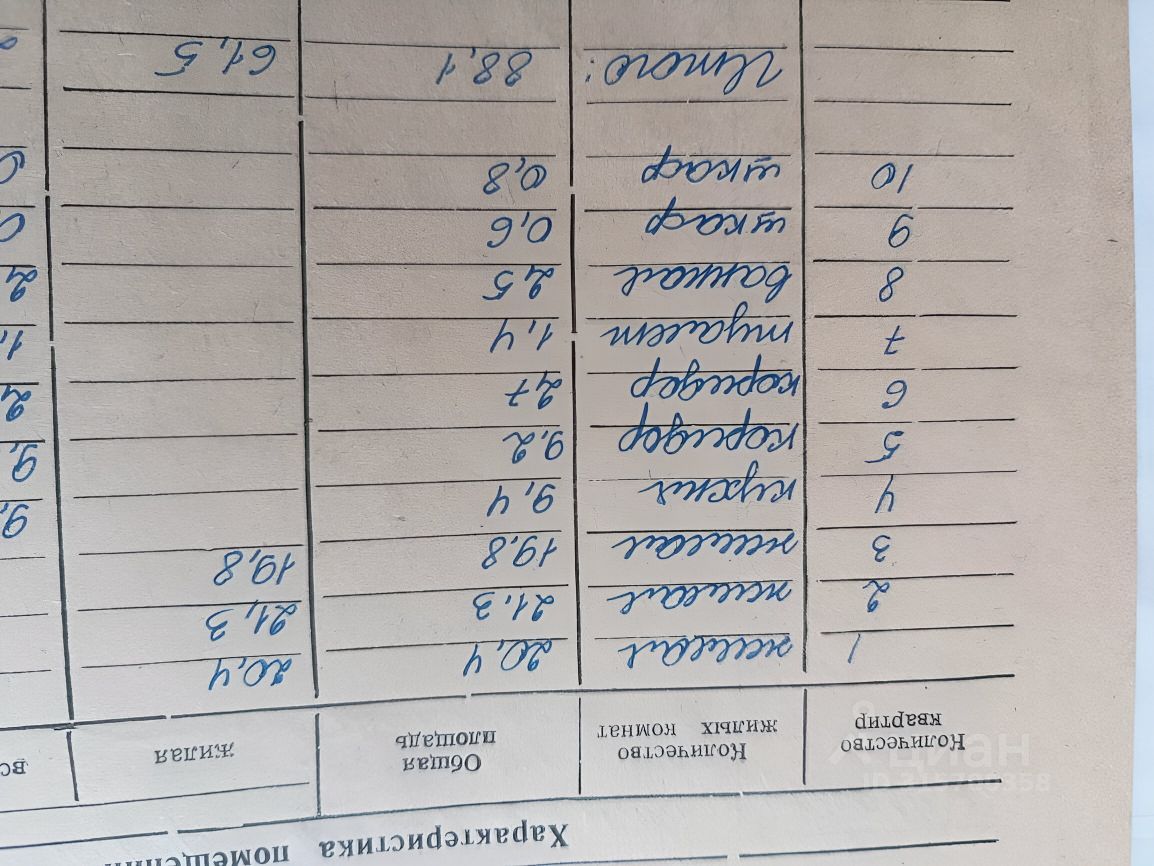 Характеристика помещений
Количество квартир Количество жилых комнат Общая площадь жилая вс
1 жилая 20,4 20,4
2 жилая 21,3 21,3
3 жилая 19,8 19,8
4 кухня 9,4 9,
5 коридор 9,2 9,
6 коридор 2,7 2,
7 туалет 1,4 1,
8 ванная 2,5 2,
9 шкаф 0,6 0,
10 шкаф 0,8 0
Итого: 88,1 61,5
циан